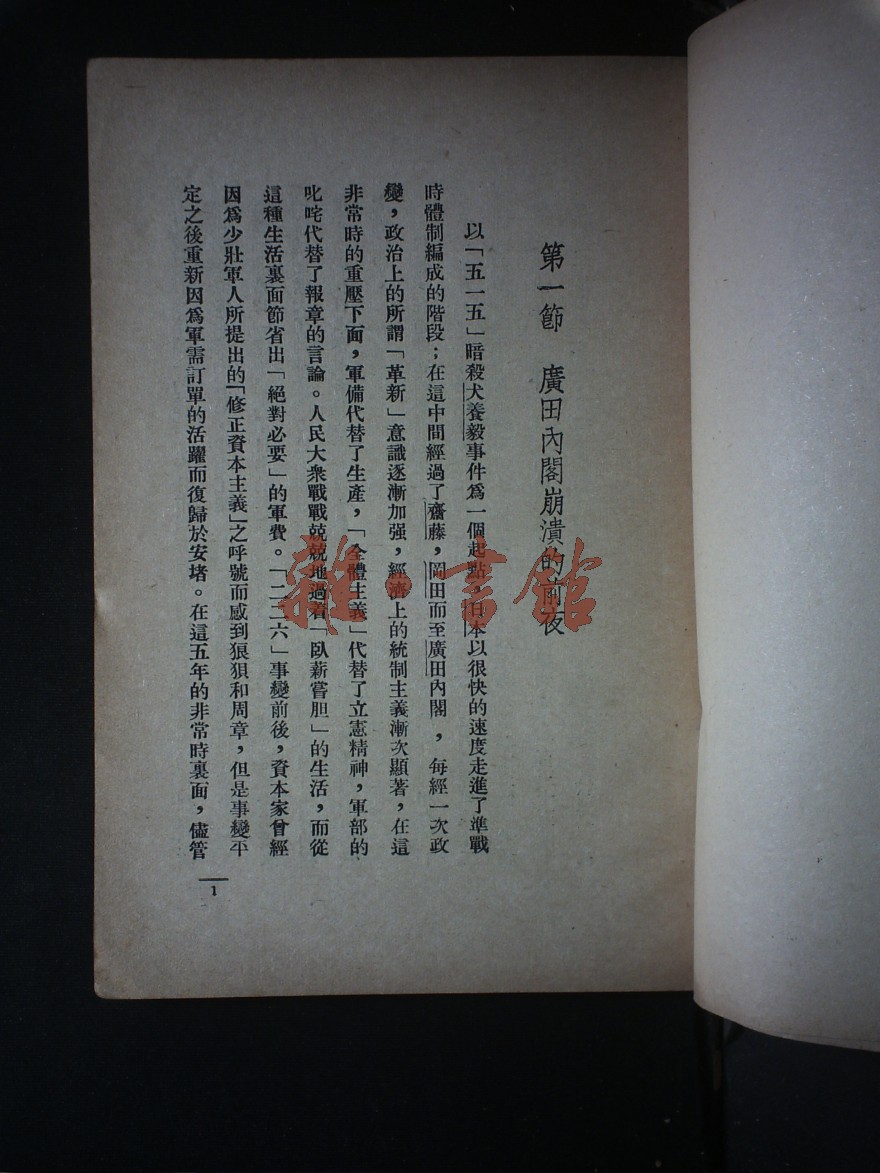 第一節　廣田內閣崩潰的前夜
以「五一五」暗殺犬養毅事件爲一個起點，日本以很快的速度走進了準戰
時體制編成的階段；在這中間經過了齋藤，岡田而至廣田內閣，每經一次政
變，政治上的所謂「革新」意識逐漸加强，經濟上的統制主義漸次顯著，在這
非常時的重壓下面，軍備代替了生產，「全體主義」代替了立憲精神，軍部的
叱咤代替了報章的言論。人民大衆戰戰兢兢地過着「臥薪嘗胆」的生活，而從
這種生活裏面節省出「絕對必要」的軍費。「二二六」事變前後，資本家曾經
因爲少壯軍人所提出的「修正資本主義」之呼號而感到狼狽和周章，但是事變平
定之後重新因爲軍需訂單的活躍而復歸於安堵。在這五年的非常時裏面，儘管
1
雜·書館